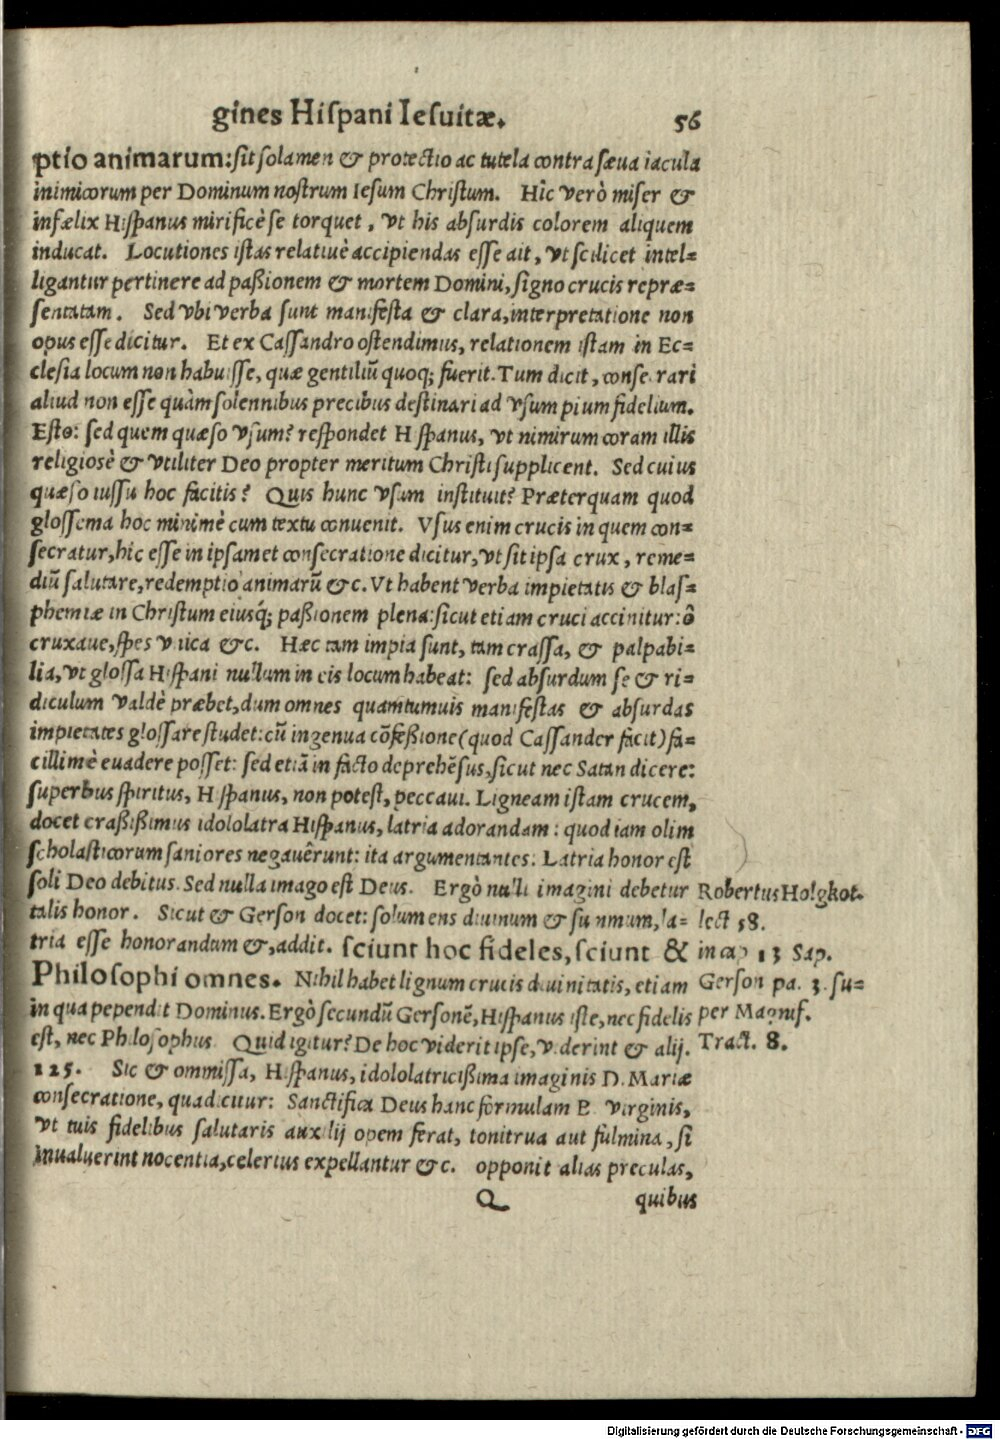 gines Hiſpani Ieſuitæ. 56
ptio animarum: ſit ſolamen & protectio ac tutela contra ſæua iacula
inimicorum per Dominum noſtrum Ieſum Chriſtum. Hîc verò miſer &
infælix Hiſpanus mirificè ſe torquet, vt his abſurdis colorem aliquem
inducat. Locutiones iſtas relatiuè accipiendas eſſe ait, vt ſcilicet intel=
ligantur pertinere ad paßionem & mortem Domini, ſigno crucis repræ=
ſentatam. Sed vbi verba ſunt manifeſta & clara, interpretatione non
opus eſſe dicitur. Et ex Caſſandro oſtendimus, relationem iſtam in Ec=
cleſia locum non habuiſſe, quæ gentiliũ quoq; fuerit. Tum dicit, conſe rari
aliud non eſſe quàm ſolennibus precibus deſtinari ad vſum pium fidelium.
Eſto: ſed quem quæſo vſum? reſpondet Hiſpanus, vt nimirum coram illis
religioſè & vtiliter Deo propter meritum Chriſti ſupplicent. Sed cuius
quæſo iuſſu hoc facitis? Quis hunc vſum inſtituit? Præterquam quod
gloſſema hoc minimè cum textu conuenit. Vſus enim crucis in quem con=
ſecratur, hic eſſe in ipſamet conſecratione dicitur, vt ſit ipſa crux, reme=
diũ ſalutare, redemptio animarũ &c. Vt habent verba impietatis & blaſ=
phemiæ in Chriſtum eiusq́; paßionem plena: ſicut etiam cruci accinitur: ô
crux aue, ſpes vnica &c. Hæc tam impia ſunt, tam craſſa, & palpabi=
lia, vt gloſſa Hiſpani nullum in eis locum habeat: ſed abſurdum ſe & ri=
diculum valdè præbet, dum omnes quamtumuis manifeſtas & abſurdas
impietates gloſſare ſtudet: cũ ingenua cõfeßione (quod Caſſander facit) fa=
cillimè euadere poſſet: ſed etiã in facto deprehẽſus, ſicut nec Satan dicere:
ſuperbus ſpiritus, Hiſpanus, non poteſt, peccaui. Ligneam iſtam crucem,
docet craßißimus idololatra Hiſpanus, latria adorandam: quod iam olim
ſcholaſticorum ſaniores negauêrunt: ita argumentantes: Latria honor eſt
ſoli Deo debitus. Sed nulla imago eſt Deus. Ergò nulli imagini debetur
talis honor. Sicut & Gerſon docet: ſolum ens diuinum & ſummum, la=
tria eſſe honorandum &, addit. ſciunt hoc fideles, ſciunt &
Philoſophi omnes. Nihil habet lignum crucis diuinitatis, etiam
in qua pependit Dominus. Ergò ſecundũ Gerſonẽ, Hiſpanus iſte, nec fidelis
eſt, nec Philoſophus. Quid igitur? De hoc viderit ipſe, viderint & alij.
125. Sic & ommiſſa, Hiſpanus, idololatricißima imaginis D. Mariæ
conſecratione, qua dicitur: Sanctifica Deus hanc formulam B. virginis,
vt tuis fidelibus ſalutaris auxilij opem ferat, tonitrua aut fulmina, ſi
inualuerint nocentia, celerius expellantur &c. opponit alias preculas,
Q quibus
Robertus Holgkot.
lect 58.
in cap 13 Sap.
Gerſon pa. 3. ſu=
per Magnif.
Tract. 8.
Digitalisierung gefördert durch die Deutsche Forschungsgemeinschaft - DFG